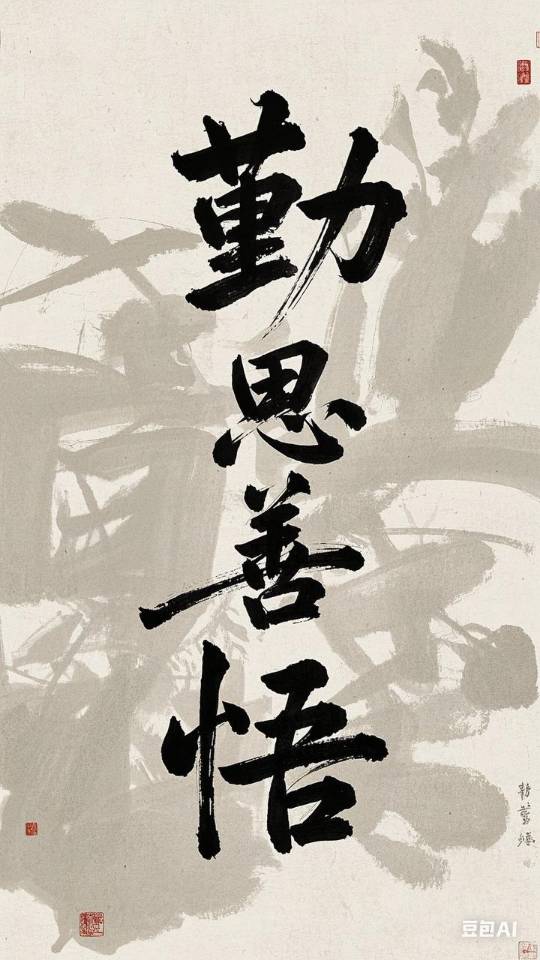 勤思善悟
豆包AI